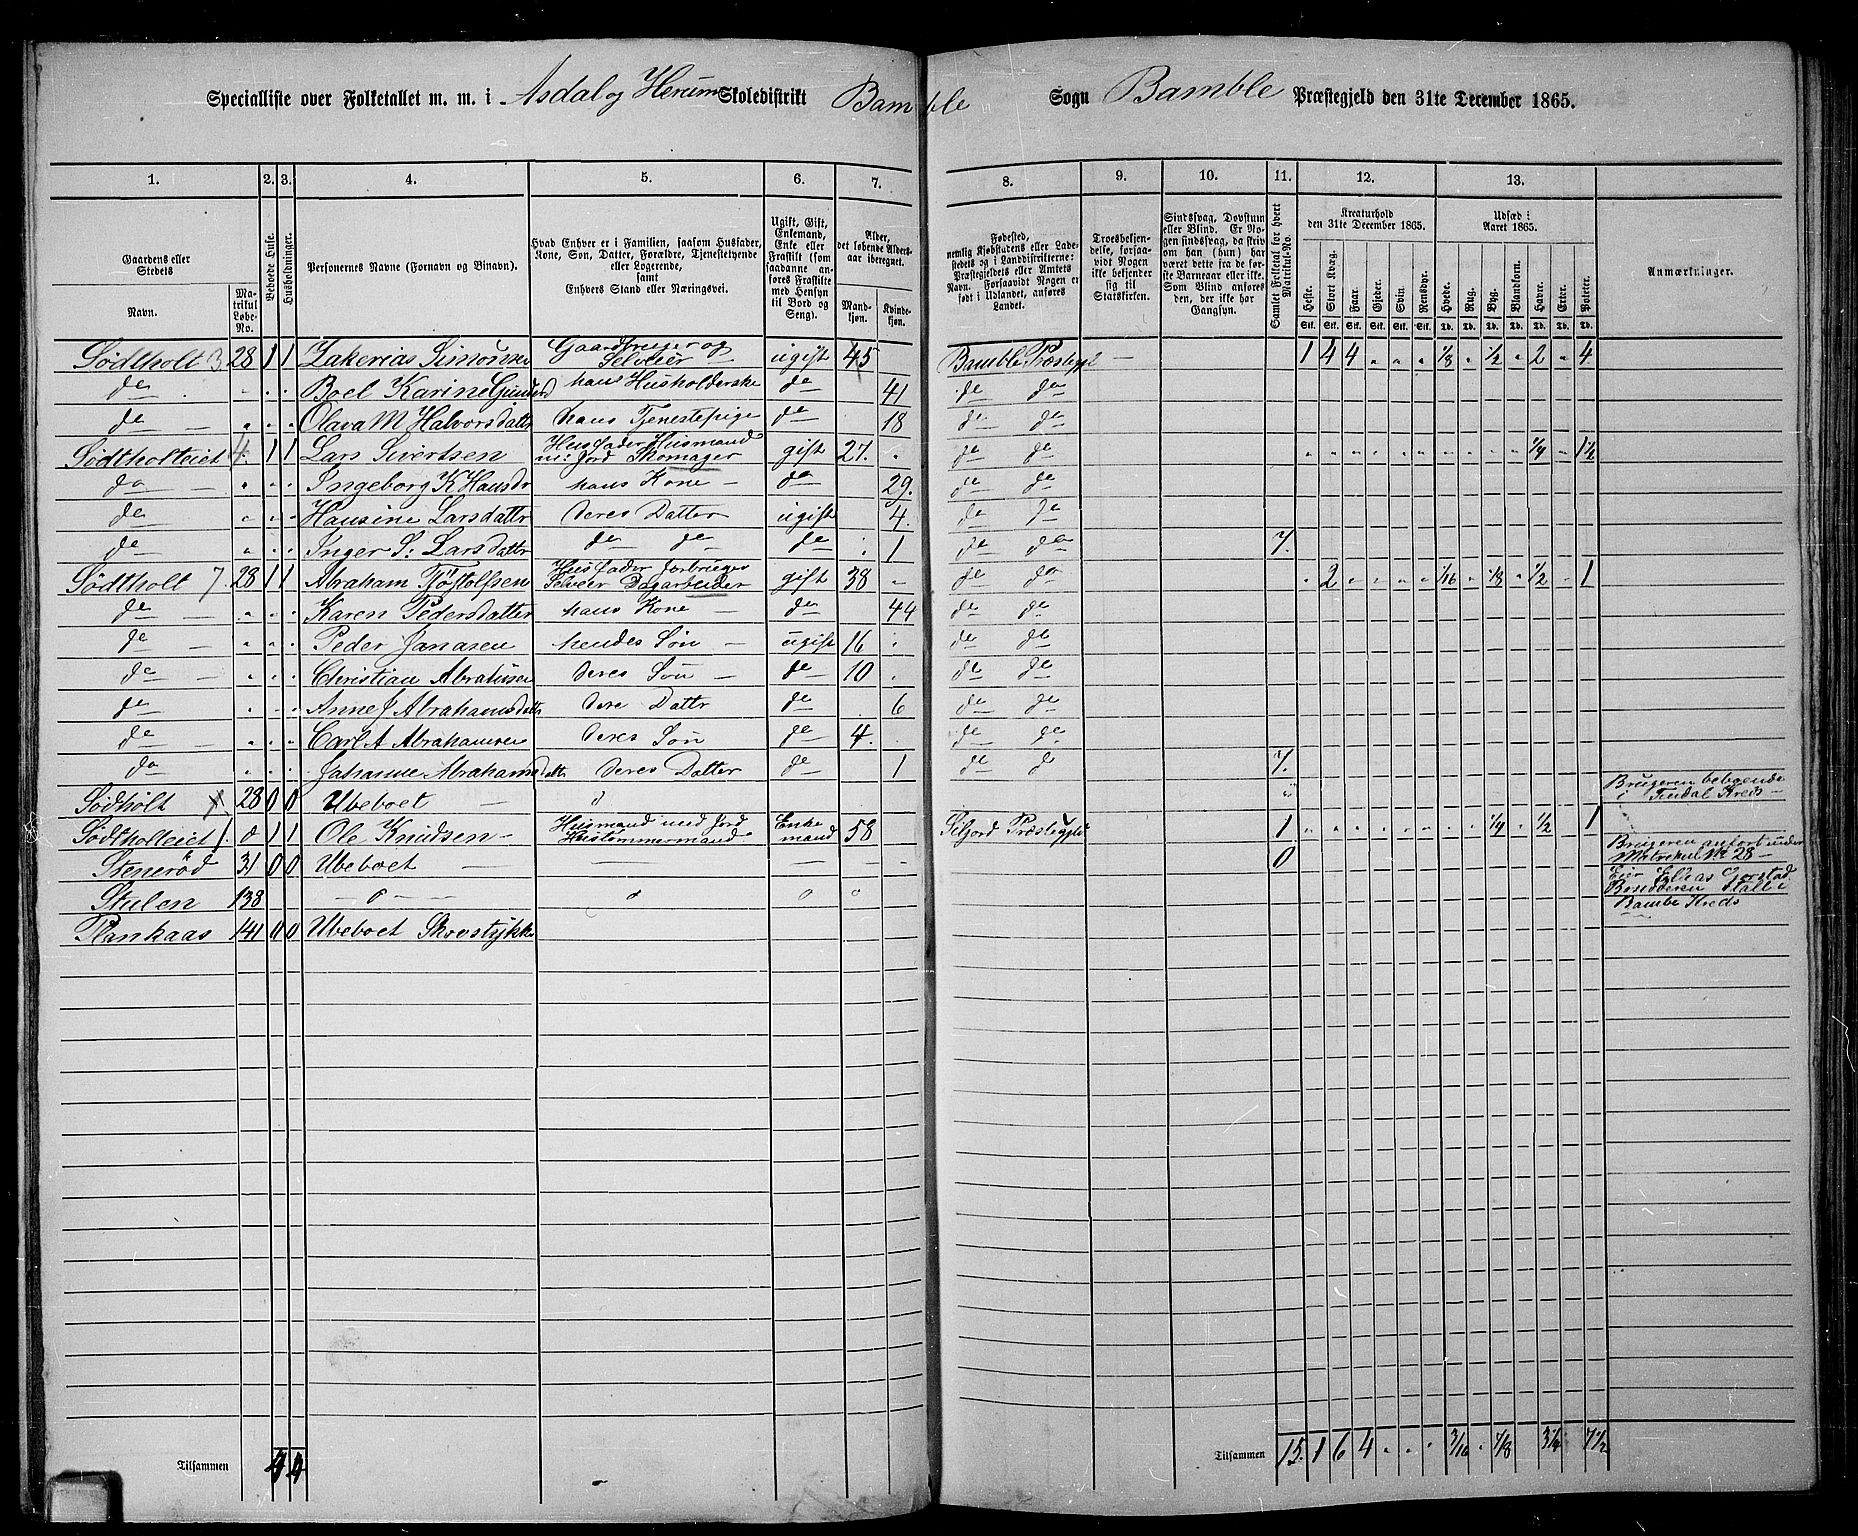 Specialliste over Folketallet m. m. i Asdal og Herum Skoledistrikt Bamble Sogn Bamble Præstegjeld den 31te December 1865.
1. 2. 3. 4. 5. 6. 7. 8. 9. 10. 11. 12. 13.
Gaardens eller Stedets
Navn.
Matrikul Løbe-No.
Beboede Huse.
Husholdninger.
Personernes Navne (Fornavn og Binavn).
Hvad Enhver er i Familien, saasom Husfader, Kone, Søn, Datter, Forældre, Tjenestetyende eller Logerende,
samt
Enhvers Stand eller Næringsvei.
Ugift, Gift, Enkemand, Enke eller Fraskilt (som saadanne anføres Fraskilte med Hensyn til Bord og Seng).
Alder, det løbende Aldersaar iberegnet.
Mandkjøn. Kvindekjøn.
Fødested, nemlig Kjøbstadens eller Ladestedets og i Landdistrikterne: Præstegjeldets eller Amtets Navn. Forsaavidt Nogen er født i Udlandet, anføres Landet.
Troesbekjendelse, forsaavidt Nogen ikke bekjender sig til Statskirken.
Sindssvag, Døvstum eller Blind. Er Nogen sindssvag, da skriv om han (hun) har været dette fra de første Barneaar eller ikke. Som Blind anføres den, der ikke har Gangsyn.
Samlet Folketal for hvert Matrikul-No.
Kreaturhold den 31te December 1865.
Heste. Stort Kvæg. Faar. Gjeder. Svin. Rensdyr.
Udsæd i Aaret 1865.
Hvede. Rug. Byg. Blandkorn. Havre. Erter. Poteter.
Stk. Stk. Stk. Stk. Stk. Stk. Td. Td. Td. Td. Td. Td. Td.
Anmærkninger.
Södtholt 3 28 1 1 Zakerias Simonsen Gaardbruger og Selveier ugift 45 Bamble Præstegj — 1 4 4 „ „ „ 1/8 „ 1/2 „ 2 „ 4
do „ „ „ Boel Karine Gunders hans Husholderske do 41 do do
do „ „ „ Olava M Halvorsdatter hans Tjenestepige do 18 do do
Södtholteiet 4. 1 1 Lars Sivertsen Husfader Husmand m: Jord Skomager gift 27. „ do do 1/4 „ 1 1/2
do „ „ „ Ingeborg K Hansdr hans Kone — do 29. do do
do „ „ „ Hansine Larsdattr deres Datter ugift 4. do do
do „ „ „ Inger S: Larsdattr do do do 1 do do 7.
Södtholt 7. 28 1 1 Abraham Töstolfsen Husfader Jorbruger Selveier Dagarbeider gift 38 „ do do „ 2 „ „ „ „ 1/16 „ 1/8 „ 1/2 „ 1
do — „ „ „ Karen Pedersdatter hans Kone — do 44 do do
do — „ „ „ Peder Janasen hendes Sön — ugift 16 „ do do
do — „ „ „ Christian Abrahsen deres Sön — do 10 „ do do
do „ „ „ Anne J Abrahamsdattr dere Dattr do 6 do do
do — „ „ „ Carl A Abrahamsen deres Sön do 4. do do
do „ „ „ Johanne Abrahamsdatt deres Datter do 1 do do 7.
Södholt x 28 0 0 Ubeboet — „ Brugeren
i Kreds —
Södtholteiet 1. 0 1 1 Ole Knudsen — Husmand med Jord Hustömmermand Enkemand 58 Siljord Præstegjeld 1 1/4 „ 1/2 „ 1
Steneröd 31 0 0 Ubeboet — 0 Brugeren anfört under
Matrikul No 28 —
Stulen 138 — o —
Bamble Kreds
Plankaas 141 0 0 Ubeboet Skovstykke
Tilsammen 4 4
Tilsammen 15. 1 6 4 „ „ „ 3/16 „ 7/8 „ 3 1/4 „ 7 1/2